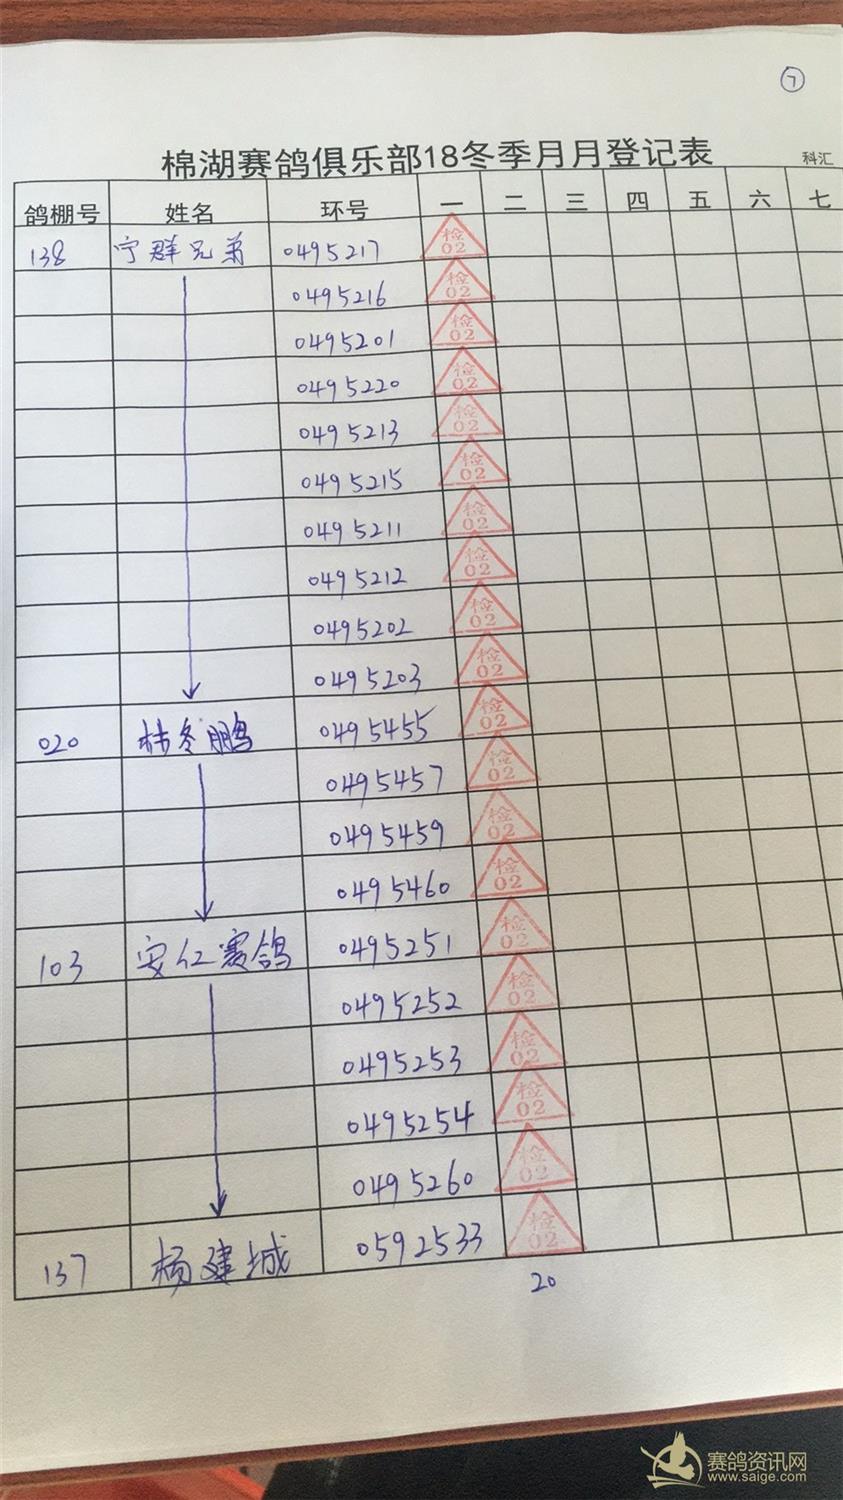 7
棉湖赛鸽俱乐部18冬季月月登记表 科汇
鸽棚号 姓名 环号 一 二 三 四 五 六 七
138 宁群兄弟 0495217 检02
0495216 检02
0495201 检02
0495220 检02
0495213 检02
0495215 检02
0495211 检02
0495212 检02
0495202 检02
0495203 检02
020 林冬鹏 0495455 检02
0495457 检02
0495459 检02
0495460 检02
103 安仁赛鸽 0495251 检02
0495252 检02
0495253 检02
0495254 检02
0495260 检02
137 杨建城 0592533 检02
20
赛鸽资讯网
www.saige.com